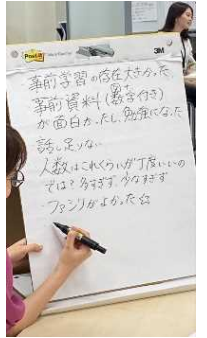 Post-it
3M
事前学習の存在大きかった。
事前資料(数字付き)
が面白かったし、勉強になった
話し足りない
人数はこれくらいが丁度いいの
では?多すぎず、少なすぎず
ファシリがよかった☆